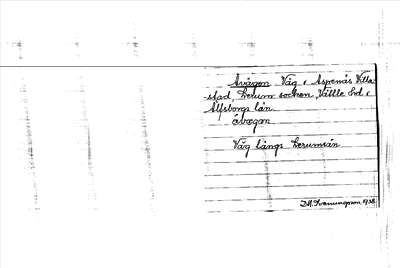 Åvägen Väg i Aspenäs Villa-
stad Lerums socken, Vättle hd i
Älfsborgs län.
åvägen
Väg längs Lerumsån
D.A. Svenungsson 1938